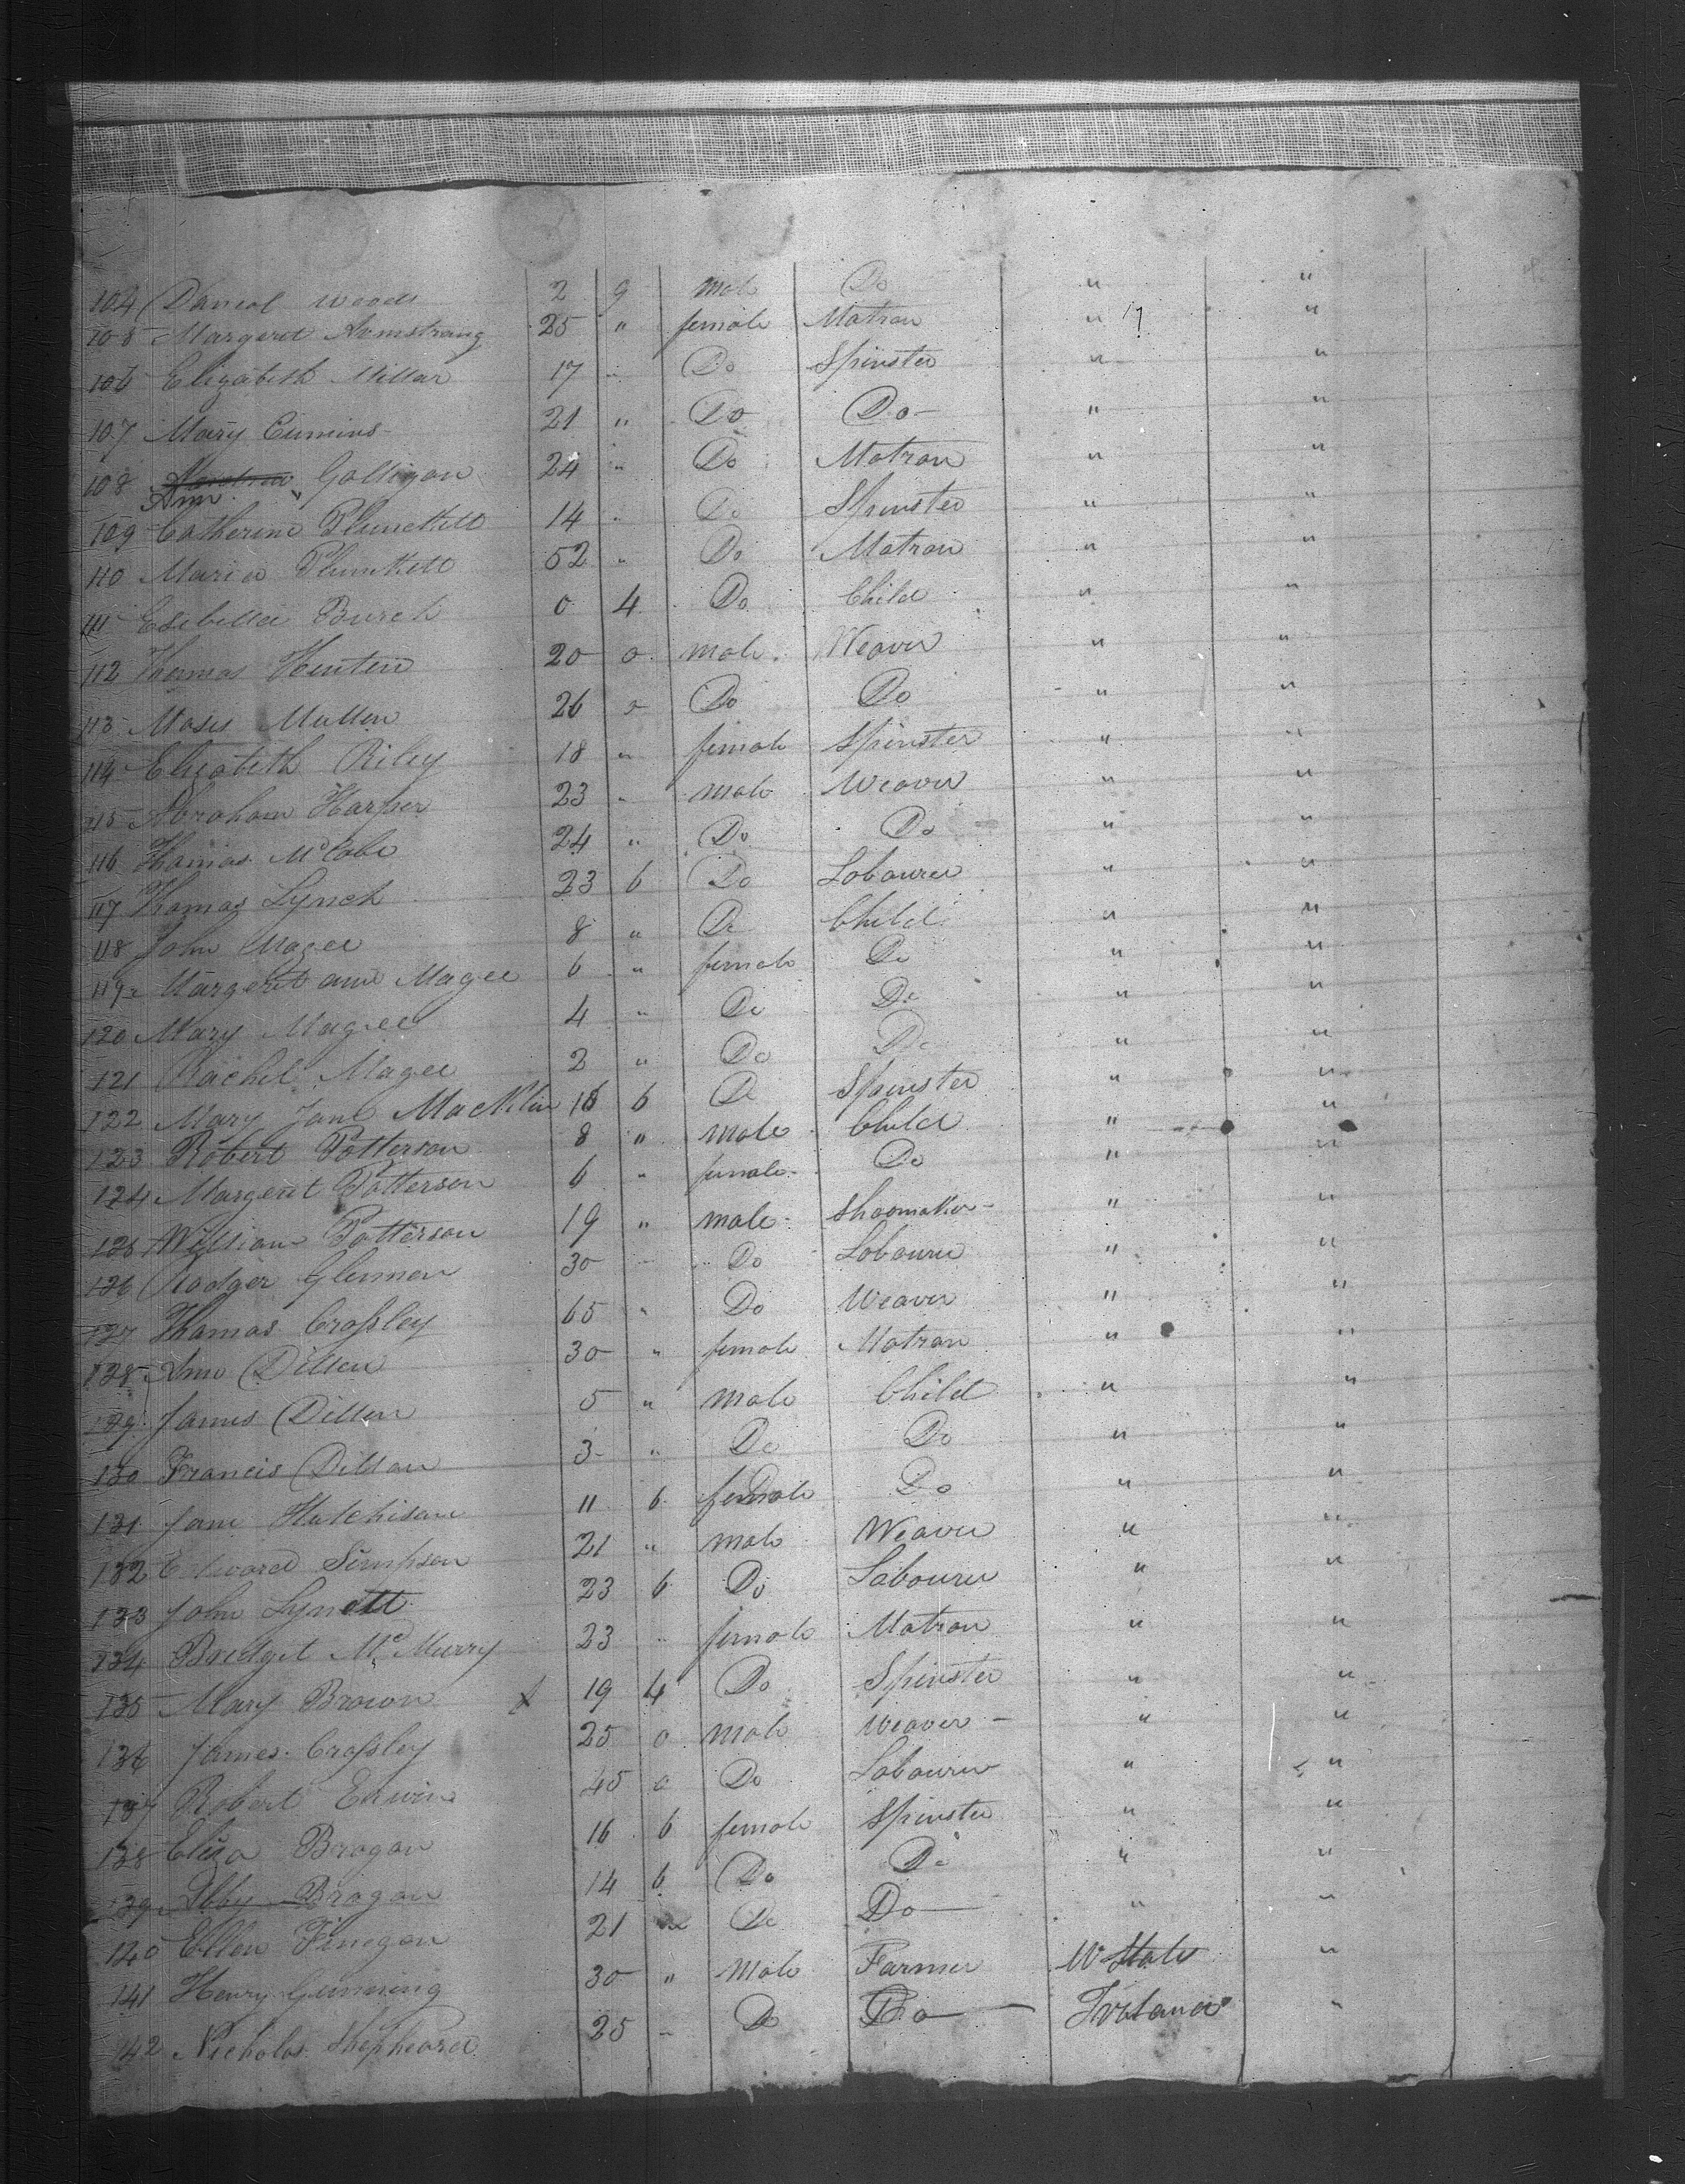 104 Danial Woods 2 9 male Do " "
105 Margeret Armstrang 25 " female Matron " "
106 Elizabeth Millar 17 " Do Spinster " "
107 Mary Cumins 21 " Do Do " "
108 Ann Galligan 24 " Do Matron " "
109 Catherine Plunckett 14 " Do Spinster " "
110 Maria Plunkett 52 " Do Matron " "
111 Esebella Burch 0 4 Do Child " "
112 Thomas Henten 20 0 male Weaver " "
113 Moses Mullen 26 0 Do Do " "
114 Elizabeth Riley 18 " female Spinster " "
115 Abraham Harper 23 " male Weaver " "
116 Thomas McCabe 24 " Do Do " "
117 Thomas Lynch 23 6 Do Labourer " "
118 John Magee 8 " Do Child " "
119 Margeret ann Magee 6 " female Do " "
120 Mary Magee 4 " Do Do " "
121 Rachel Magee 2 " Do Do " "
122 Mary Jane Macklin 16 6 Do Spinster " "
123 Robert Patterson 8 " male Child " "
124 Margeret Patterson 6 " female Do " "
125 William Patterson 19 " male Shoomaker " "
126 Rodger Glennen 30 " Do Labourer " "
127 Thomas Crossley 65 " Do Weaver " "
128 Ann Dillen 30 " female Matron " "
129 James Dillen 5 " male Child " "
130 Francis Dillan 3 " Do Do " "
131 Jane Hutchisan 11 6 female Do " "
132 Edward Simpson 21 " male Weaver " "
133 John Lynott 23 6 Do Labourer " "
134 Bridget McMurry 23 " female Matron " "
135 Mary Brown x 19 4 Do Spinster " "
136 James Crossley 25 0 male Weaver " "
137 Robert Erwin 45 0 Do Labourer " "
138 Eliza Brogan 16 6 female Spinster " "
139 Abby Brogan 14 6 Do Do " "
140 Ellen Finegan 21 Do Do " "
141 Henry Gunning 30 " Male Farmer "
142 Nicholas Shepheard 25 " Do Do Ireland "